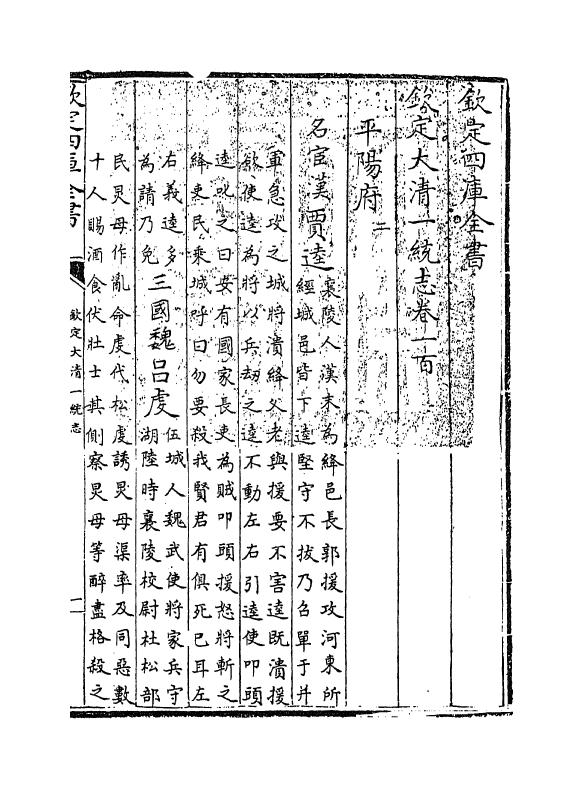 欽定四庫全書
欽定大清一統志卷一百
平陽府二
名宦漢賈逵襄陵人漢末為絳邑長郭援攻河東所
經城邑皆下逵堅守不拔乃召單于并
軍急攻之城將潰絳父老與援要不害逵既潰援
欲使逵為將以兵劫之逵不動左右引逵使叩頭
逵叱之曰安有國家長吏為賊叩頭援怒將斬之
絳吏民乘城呼曰勿要殺我賢君有俱死已耳左
右義逵多
為請乃免三國魏呂虔伍城人魏武使將家兵守
湖陸時襄陵校尉杜松部
民炅母作亂命虔代松虔誘炅母渠率及同惡數
十人賜酒食伏壯士其側察炅母等醉盡格殺之
欽定四庫全書
欽定大清一統志
一